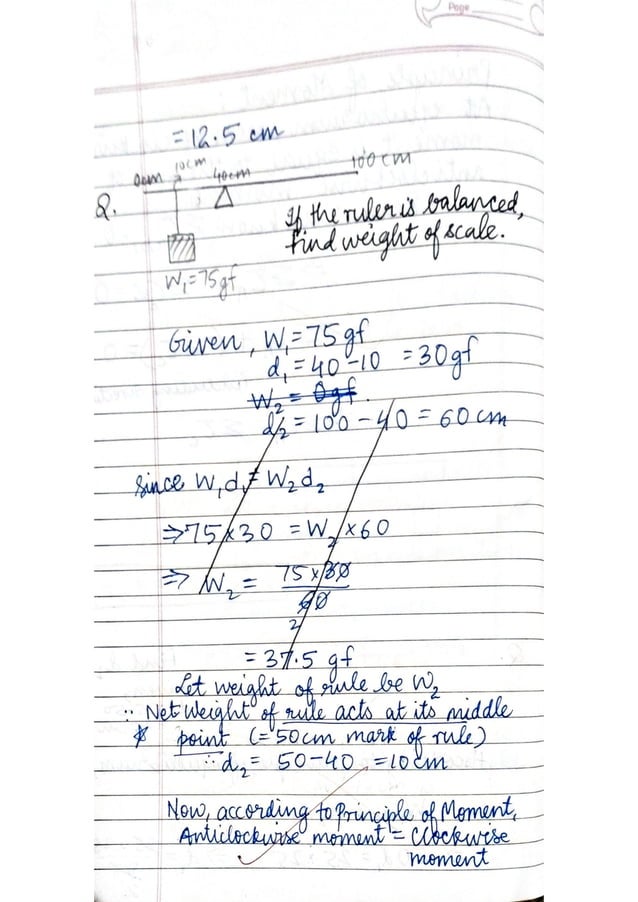 Page
= 12.5 cm
0cm 10cm 40cm 100 cm
Q.
If the ruler is balanced,
find weight of scale.
W₁=75gf
Given, W₁=75gf
d₁ = 40-10 = 30gf
W₂ = 0gf.
d₂ = 100 - 40 = 60 cm
Since W₁d₁ = W₂d₂
⇒75×30 = W₂×60
⇒ W₂ = 75×30
60
2
= 37.5 gf
Let weight of rule be W₂
∵ Net Weight of rule acts at its middle
point (=50cm mark of rule)
∴ d₂ = 50-40 = 10cm
Now, according to Principle of Moment,
Anticlockwise moment = Clockwise
moment